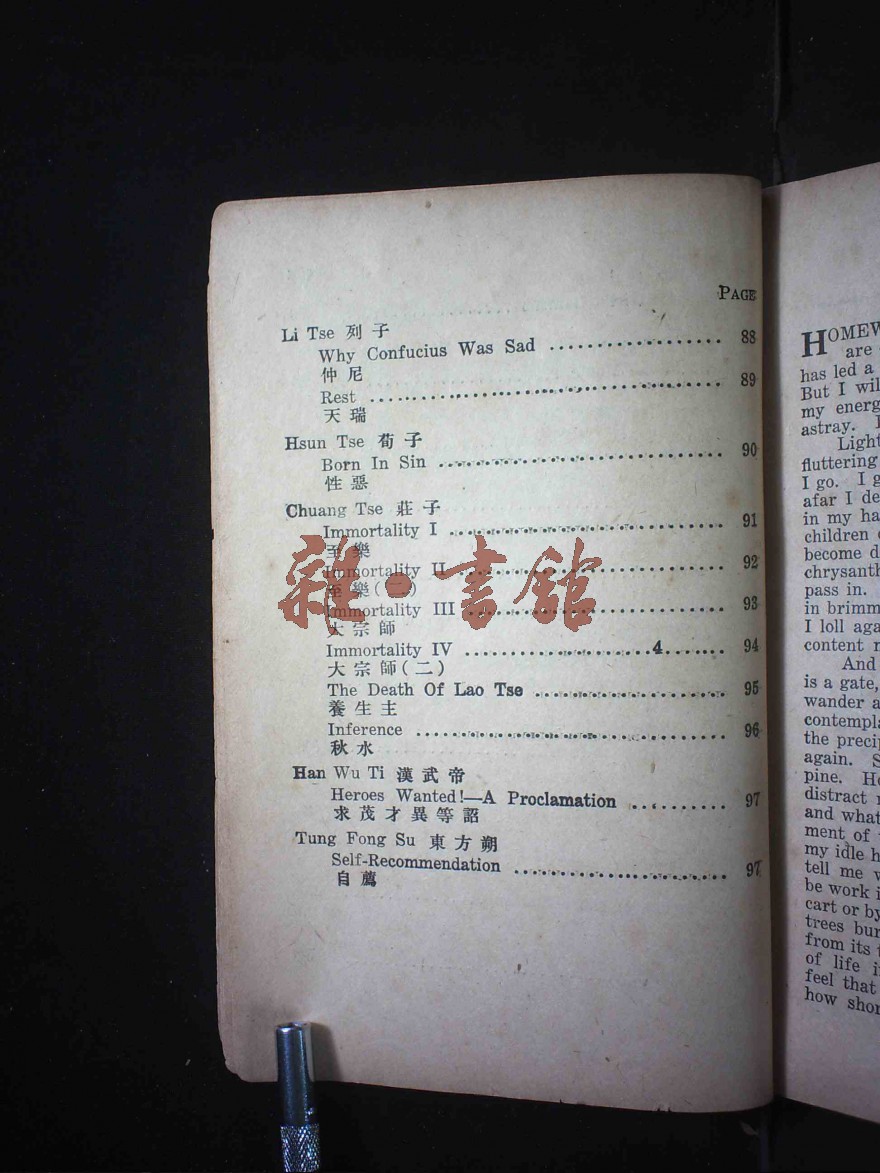 PAGE
Li Tse 列子
Why Confucius Was Sad .................... 88
仲尼
Rest .................... 89
天瑞
Hsun Tse 荀子
Born In Sin .................... 90
性惡
Chuang Tse 莊子
Immortality I .................... 91
至樂
Immortality II .................... 92
至樂(二)
Immortality III .................... 93
大宗師
Immortality IV ....................4....... 94
大宗師(二)
The Death Of Lao Tse .................... 95
養生主
Inference .................... 96
秋水
Han Wu Ti 漢武帝
Heroes Wanted!—A Proclamation .......... 97
求茂才異等詔
Tung Fong Su 東方朔
Self-Recommendation .................... 97
自薦
雜·書館
HOMEW
are
has led a
But I wil
my energ
astray.
Light
fluttering
I go. I g
afar I de
in my ha
children
become d
chrysanth
pass in.
in brimm
I loll aga
content
And
is a gate,
wander a
contempla
the precip
again. S
pine. He
distract
and what
ment of
my idle h
tell me
be work i
cart or by
trees bur
from its
of life i
feel that
how shor